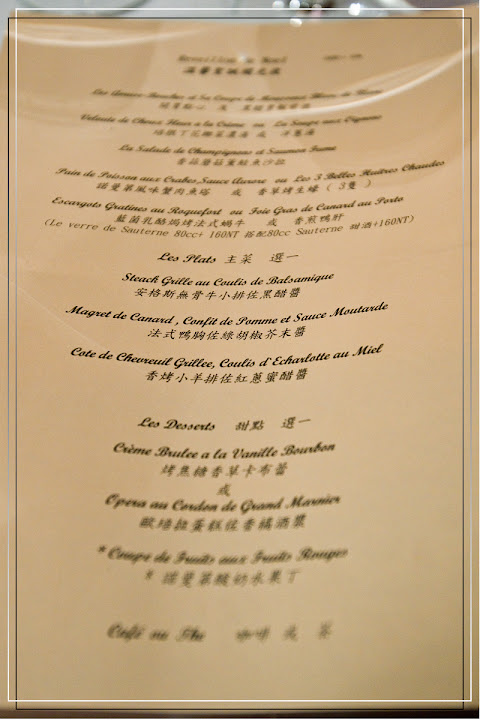 Reveillon de Noel
Les Amuse-Bouches et Sa Coupe de Mousseux Blanc de Blanc
Veloute de Choux Fleur a la Crème ou La Soupe aux Oignons
培根丁花椰菜濃湯 或 洋蔥湯
La Salade de Champignons et Saumon Fume
香菇蘑菇燻鮭魚沙拉
Pain de Poisson aux Crabes, Sauce Aurore ou Les 3 Belles Huitres Chaudes
諾曼第風味蟹肉魚塔 或 香草烤生蠔 ( 3隻 )
Escargots Gratines au Roquefort ou Foie Gras de Canard au Porto
藍菌乳酪焗烤法式蝸牛 或 香煎鴨肝
(Le verre de Sauterne 80cc+ 160NT 搭配80cc Sauterne 甜酒+160NT)
Les Plats 主菜 選一
Steack Grille au Coulis de Balsamique
安格斯無骨牛小排佐黑醋醬
Magret de Canard , Confit de Pomme et Sauce Moutarde
法式鴨胸佐綠胡椒芥末醬
Cote de Chevreuil Grillee, Coulis d'Echarlotte au Miel
香烤小羊排佐紅蔥蜜醋醬
Les Desserts 甜點 選一
Crème Brulee a la Vanille Bourbon
烤焦糖香草卡布蕾
或
Opera au Cordon de Grand Marnier
歐培拉蛋糕佐香橘酒漿
*Coupe de Fruits aux Fruits Rouges
* 諾曼第酸奶水果丁
Café ou The 咖啡 或 茶